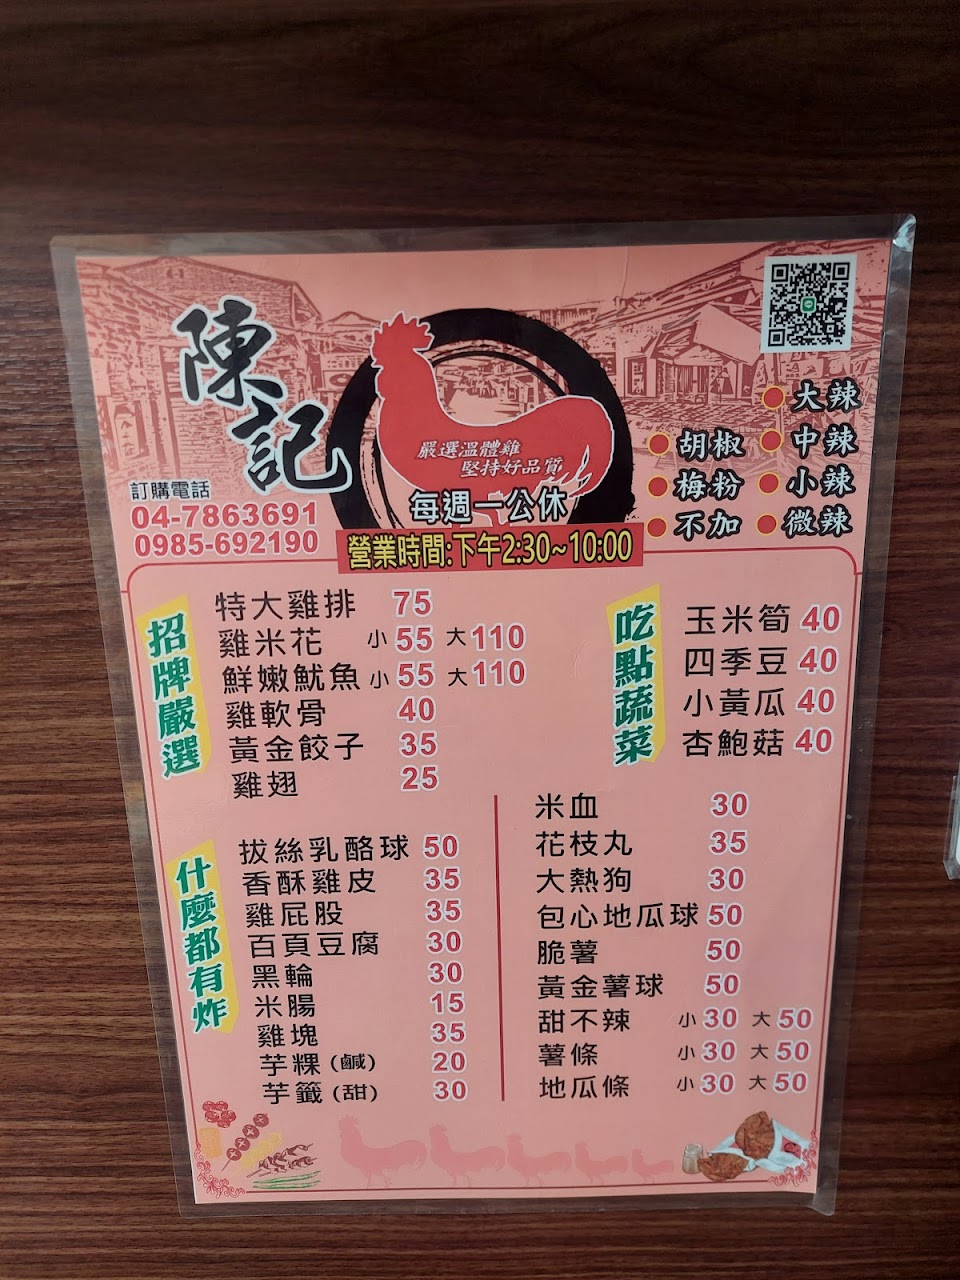 陳記
嚴選溫體雞
堅持好品質
訂購電話
04-7863691
0985-692190
每週一公休
營業時間:下午2:30~10:00
胡椒
梅粉
不加
大辣
中辣
小辣
微辣
招牌嚴選
特大雞排 75
雞米花 小 55 大 110
鮮嫩魷魚 小 55 大 110
雞軟骨 40
黃金餃子 35
雞翅 25
吃點蔬菜
玉米筍 40
四季豆 40
小黃瓜 40
杏鮑菇 40
什麼都有炸
拔絲乳酪球 50
香酥雞皮 35
雞屁股 35
百頁豆腐 30
黑輪 30
米腸 15
雞塊 35
芋粿(鹹) 20
芋籤(甜) 30
米血 30
花枝丸 35
大熱狗 30
包心地瓜球 50
脆薯 50
黃金薯球 50
甜不辣 小 30 大 50
薯條 小 30 大 50
地瓜條 小 30 大 50